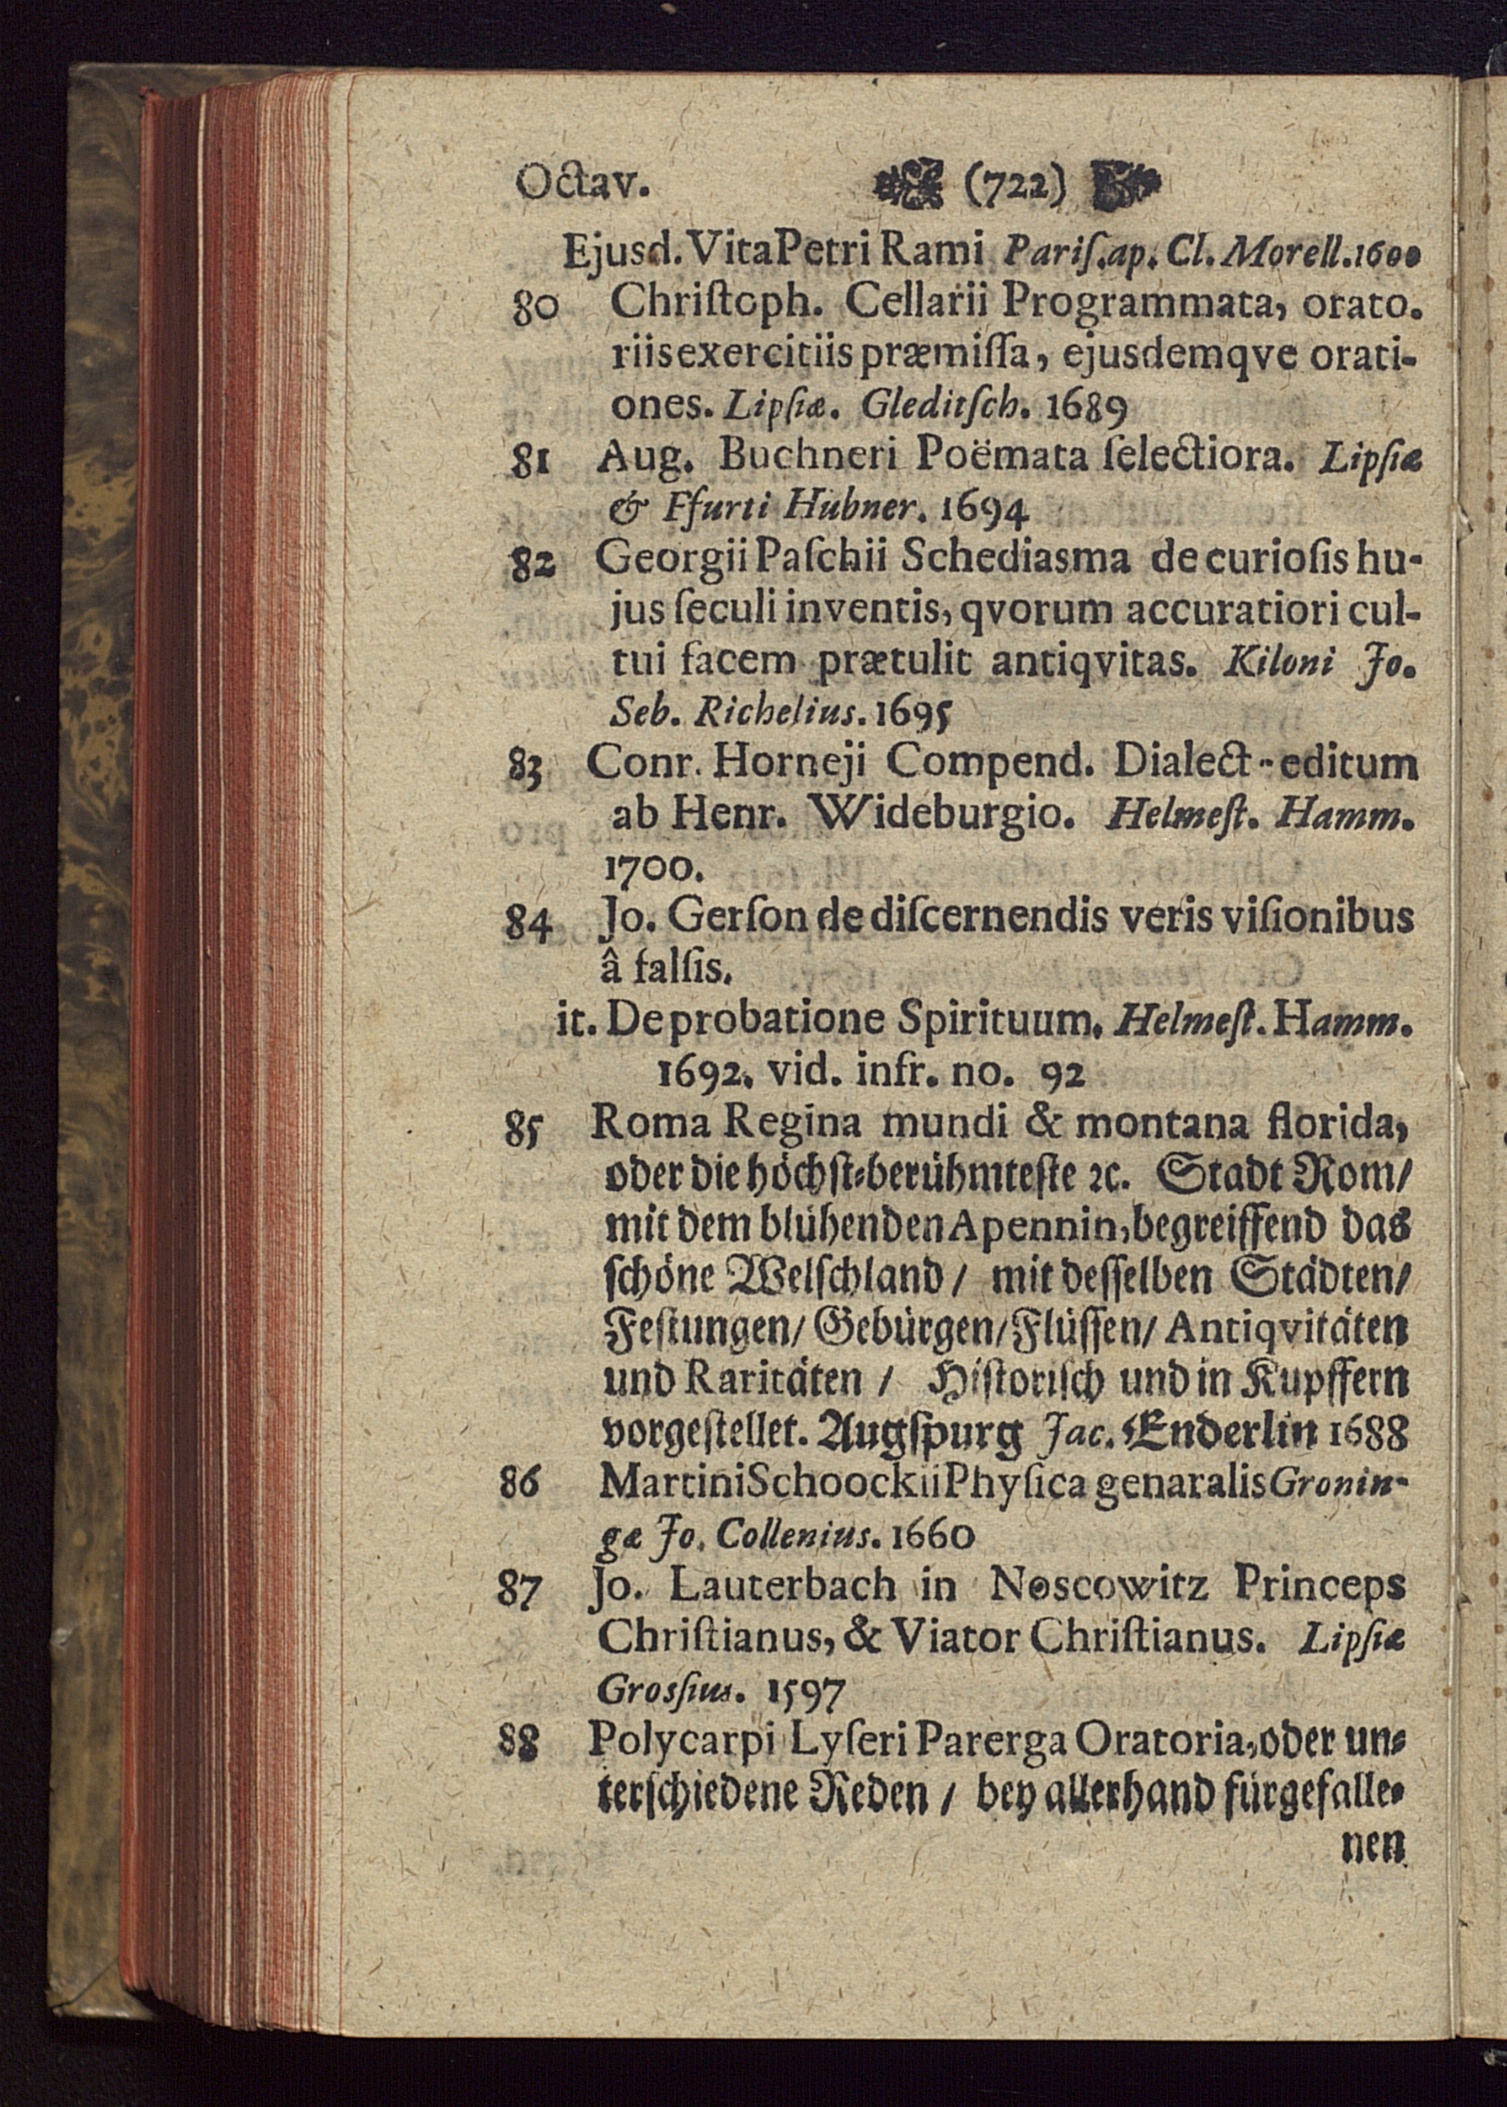 Octav. (722)
Ejusd. Vita Petri Rami Pariſ. ap. Cl. Morell. 1600
80 Chriſtoph. Cellarii Programmata, orato.
riis exercitiis præmiſſa, ejusdemqve orati-
ones. Lipſiæ. Gleditſch. 1689
81 Aug. Buchneri Poëmata ſelectiora. Lipſiæ
& Ffurti Hubner. 1694
82 Georgii Paſchii Schediasma de curioſis hu-
jus ſeculi inventis, qvorum accuratiori cul-
tui facem prætulit antiqvitas. Kiloni Jo.
Seb. Richelius. 1695
83 Conr. Horneji Compend. Dialect - editum
ab Henr. Wideburgio. Helmeſt. Hamm.
1700.
84 Jo. Gerſon de diſcernendis veris viſionibus
â falſis.
it. De probatione Spirituum. Helmeſt. Hamm.
1692. vid. infr. no. 92
85 Roma Regina mundi & montana florida,
oder die höchſt-berühmteſte ꝛc. Stadt Rom/
mit dem blühenden Apennin, begreiffend das
ſchöne Welſchland / mit deſſelben Städten/
Feſtungen/ Gebürgen/ Flüſſen/ Antiqvitäten
und Raritäten / Hiſtoriſch und in Kupffern
vorgeſtellet. Augſpurg Jac. Enderlin 1688
86 Martini Schoockii Phyſica genaralis Gronin-
gæ Jo. Collenius. 1660
87 Jo. Lauterbach in Noscowitz Princeps
Chriſtianus, & Viator Chriſtianus. Lipſiæ
Grosſius. 1597
88 Polycarpi Lyſeri Parerga Oratoria, oder un-
terſchiedene Reden / bey allerhand fürgefalle-
nen